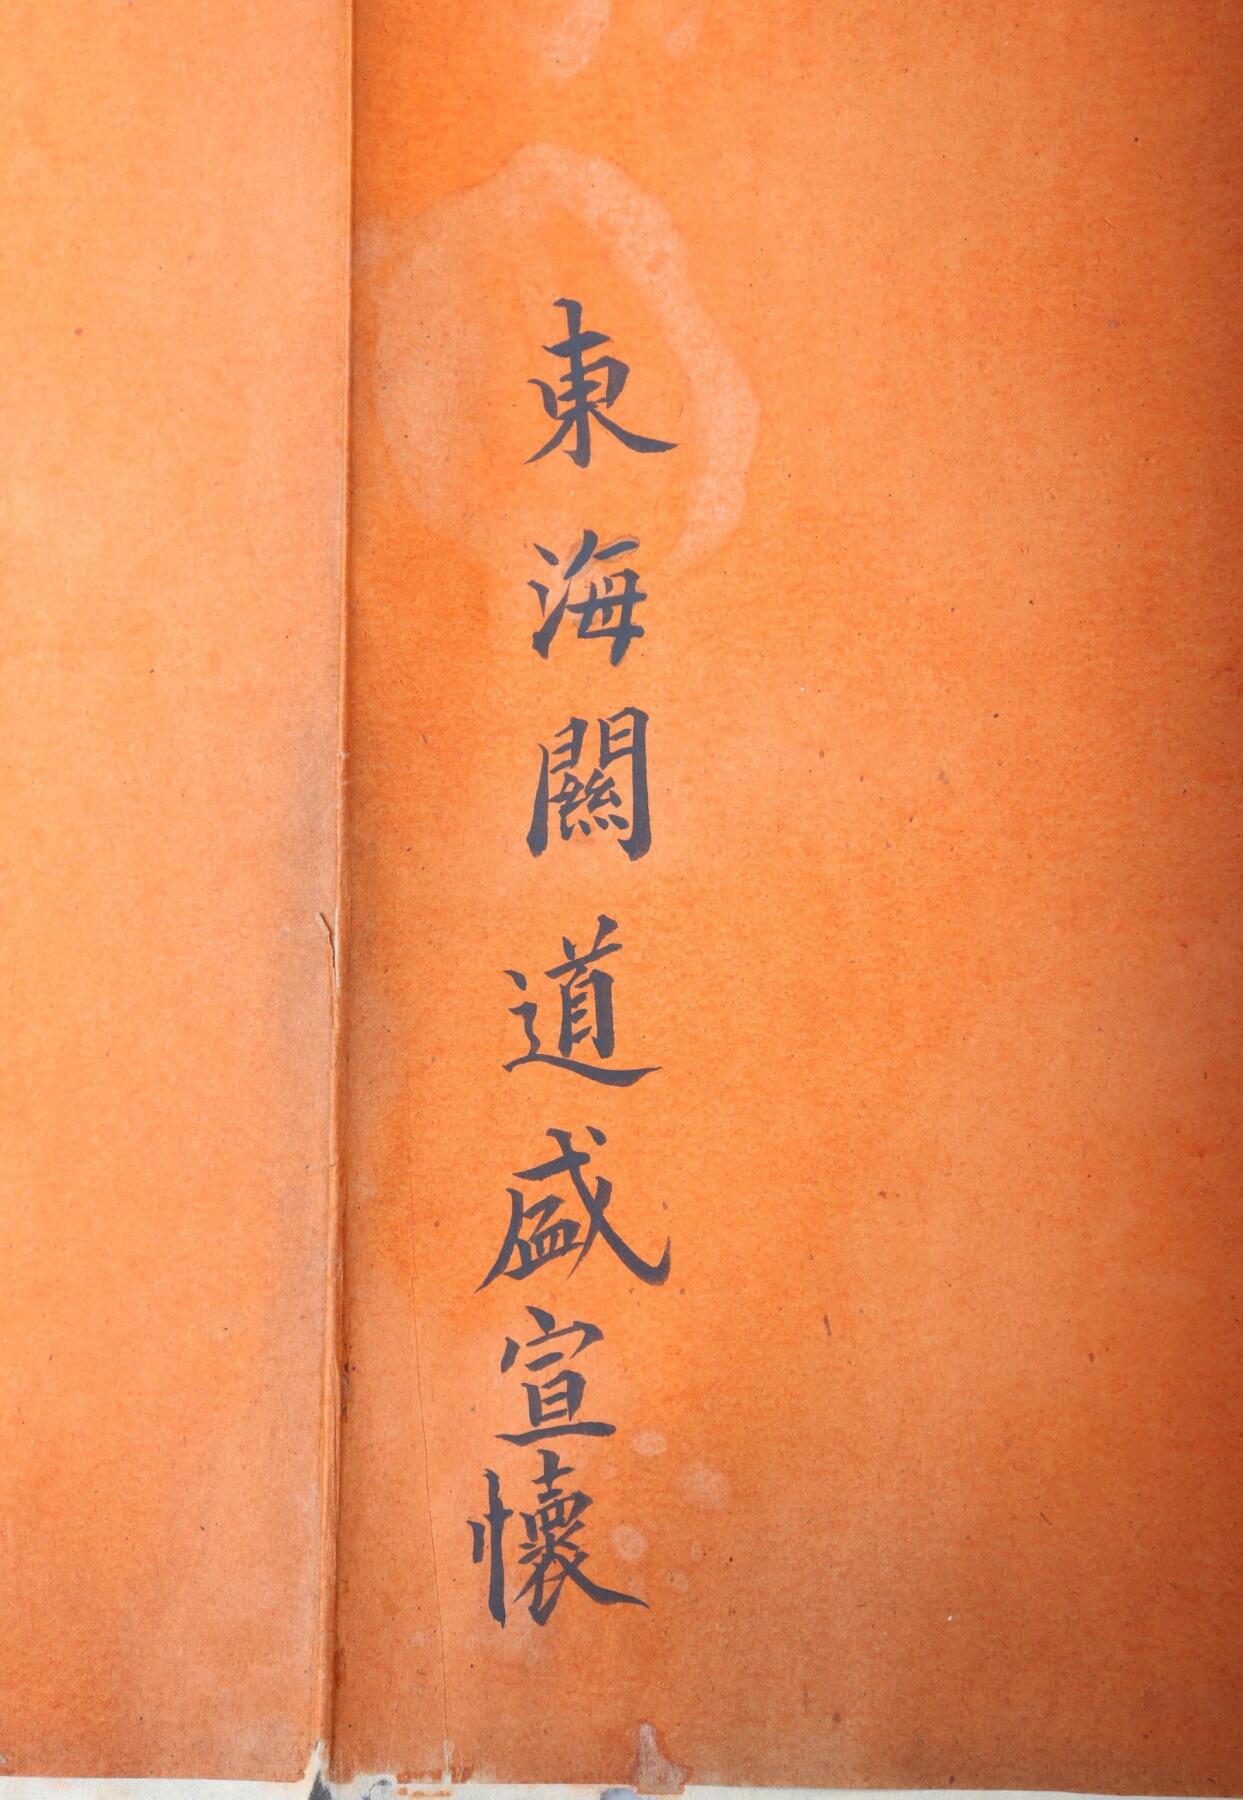 東海關道盛宣懷